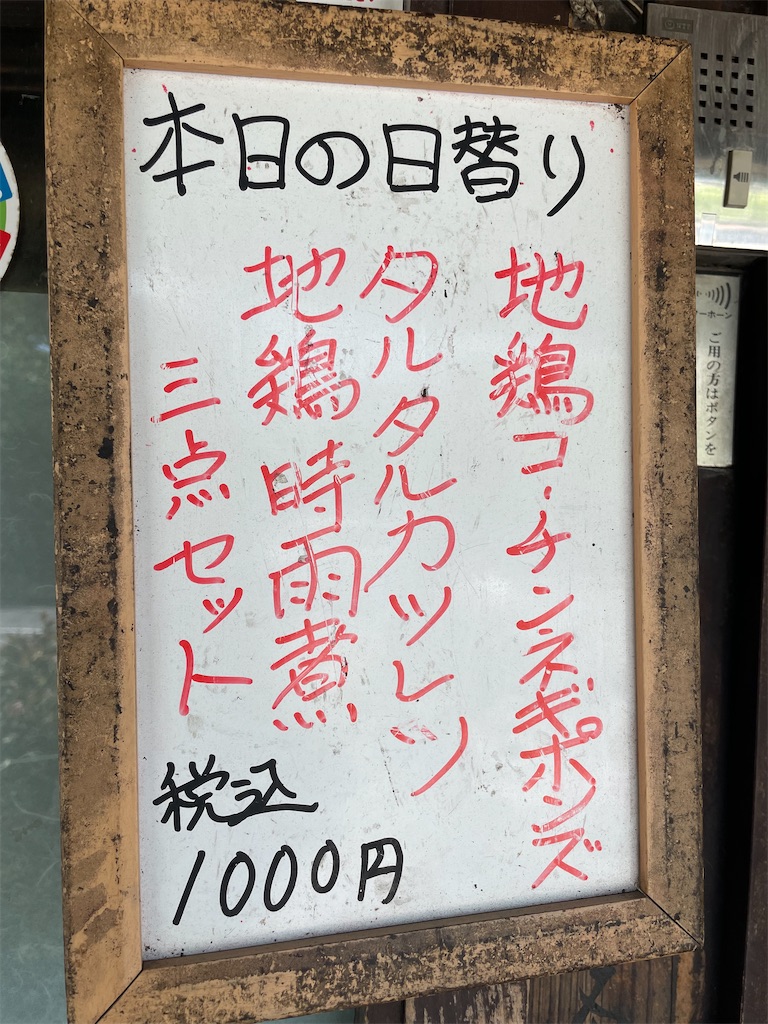 本日の日替り
地鶏コーチンネギポンズ
タルタルカツレツ
地鶏時雨煮
三点セット
税込
1000円
ーホーン
ご用の方はボタンを